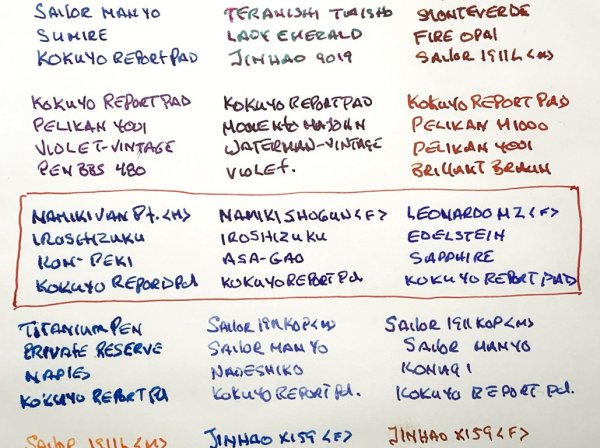 SAILOR MANYO
SUMIRE
KOKUYO REPORT PAD
TERANISHI TAISHO
LADY EMERALD
JINHAO 9019
MONTEVERDE
FIRE OPAL
SAILOR 1911L <M>
KOKUYO REPORT PAD
PELIKAN 4001
VIOLET-VINTAGE
PEN BBS 480
KOKUYO REPORT PAD
MOMENTO MAGICO
WATERMAN-VINTAGE
VIOLET.
KOKUYO REPORT PAD
PELIKAN M1000
PELIKAN 4001
BRILLANT BRAUN
NAMIKI VAN Pt. <M>
IROSHIZUKU
KON-PEKI
KOKUYO REPORD Pd
NAMIKI SHOGUN <F>
IROSHIZUKU
ASA-GAO
KOKUYO REPORT Pd.
LEONARDO MZ <F>
EDELSTEIN
SAPPHIRE
KOKUYO REPORT PAD
TITANIUM PEN
PRIVATE RESERVE
NAPLES
KOKUYO REPORT Pd
SAILOR 1911 KOP <M>
SAILOR MANYO
NADESHIKO
KOKUYO REPORT Pd.
SAILOR 1911 KOP <M>
SAILOR MANYO
KONAGI
KOKUYO REPORT Pd.
SAILOR 1911L <M>
JINHAO X159 <F>
JINHAO X159 <F>